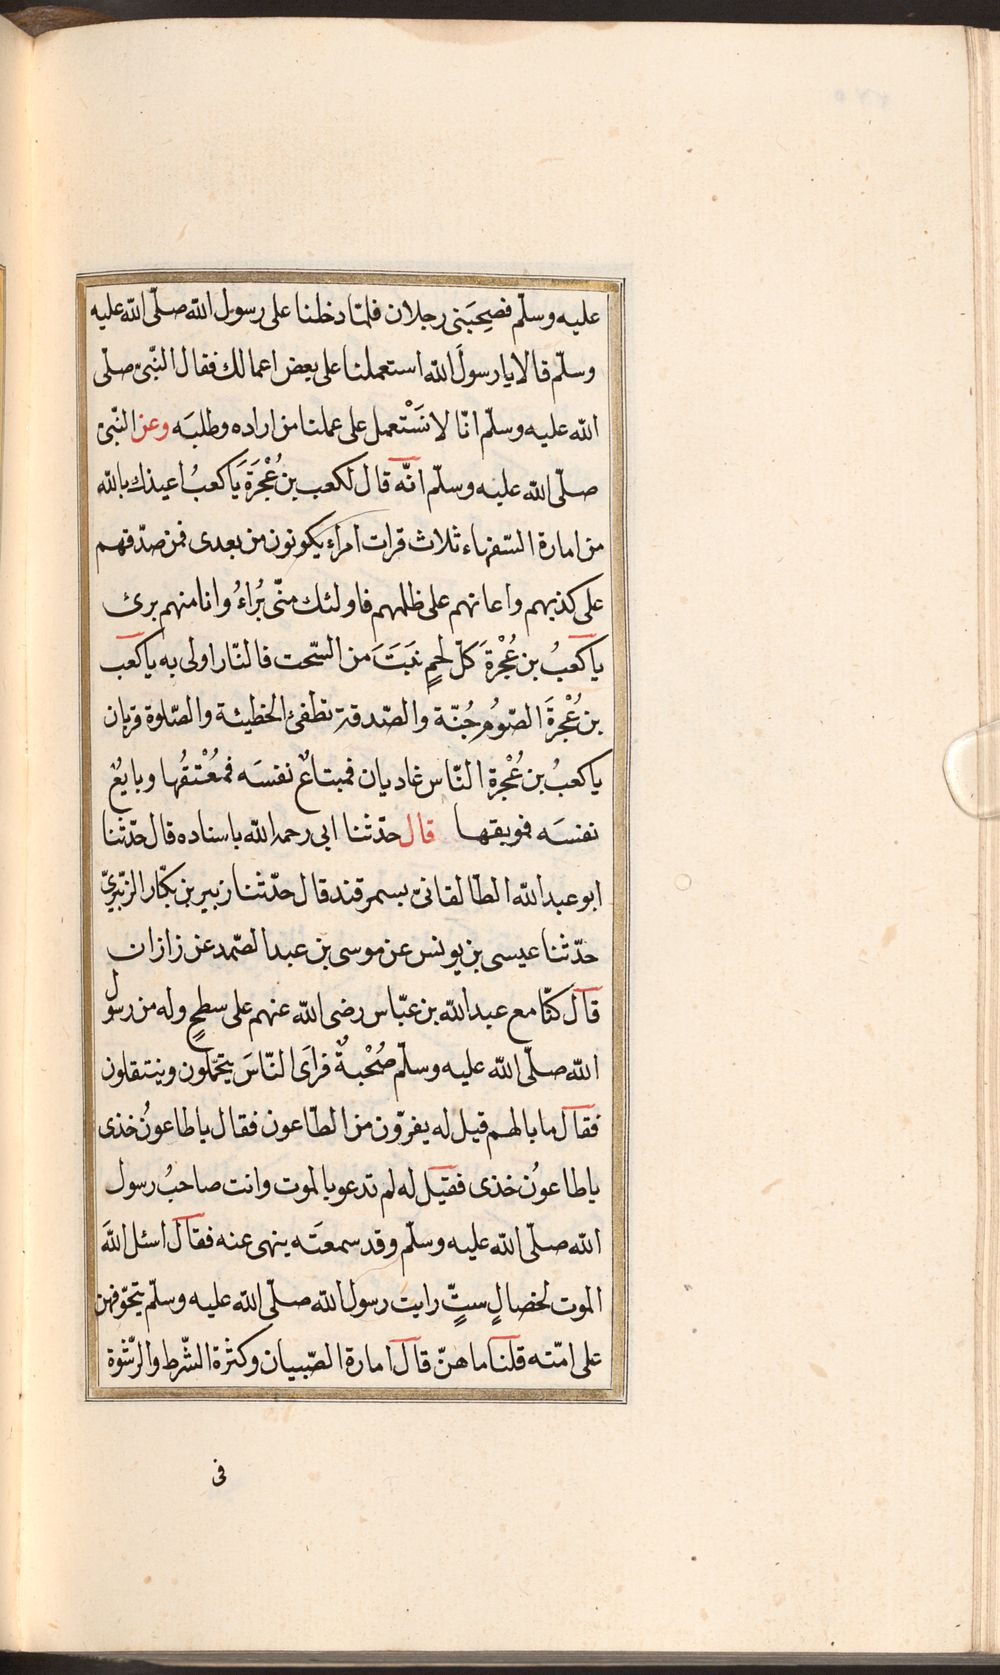 عليه وسلّم فصحبَنى رجلان فلمّا دخلنا على رسول الله صلّى الله عليه
وسلّم قالا يا رسولَ الله استعملنا على بعض اعمالك فقال النّبىّ صلّى
الله عليه وسلّم انّا لا نَسْتعمل على عملنا من اراده وطلبَه وعن النّبىّ
صلّى الله عليه وسلّم انّه قال لكعب بن عُجْرَةَ يَا كعبُ اعيذك بالله
من امارة السّفهاء ثلاث قرات امراء يكونون من بعدى فمن صدّقهم
على كذبهم واعانهم على ظلمهم فاولئك منّى بُراءُ وانا منهم برئ
يا كعبُ بن عُجْرةَ كلّ لحمٍ نبَتَ من السّحت فالنّار اولى به يا كعب
بن عُجْرةَ الصّومُ جُنّة والصّدقة تطفئ الخطيئة والصّلوة قربان
يا كعبُ بن عُجْرة النّاس غاديان فمبتاعٌ نفسَه فمُعْتقُها وبايعٌ
نفسَه فموبقها قال حدّثنا ابى رحمه الله باسناده قال حدّثنا
ابو عبد الله الطّالقانىّ بسمرقند قال حدّثنا زبير بن بكّار الزّبيرىّ
حدّثنا عيسى بن يونس عن موسى بن عبد الصّمد عن زاذان
قال كنّا مع عبد الله بن عبّاس رضى الله عنهم على سطحٍ وله من رسول
الله صلّى الله عليه وسلّم صُحْبةٌ فراَى النّاسَ يتحمّلون وينتقلون
فقال ما بالهم قيل له يفرّون من الطّاعون فقال يا طاعونُ خذى
يا طاعونُ خذى فقيل له لم تدعو بالموت وانت صاحبُ رسول
الله صلّى الله عليه وسلّم وقد سمعتَه ينهى عنه فقال اسئل اللهَ
الموت لخصالٍ ستٍّ رايت رسول الله صلّى الله عليه وسلّم يتخوّفهن
على امّته قلنا ما هنّ قال امارة الصّبيان وكثرة الشّرط والرّشوة
فى